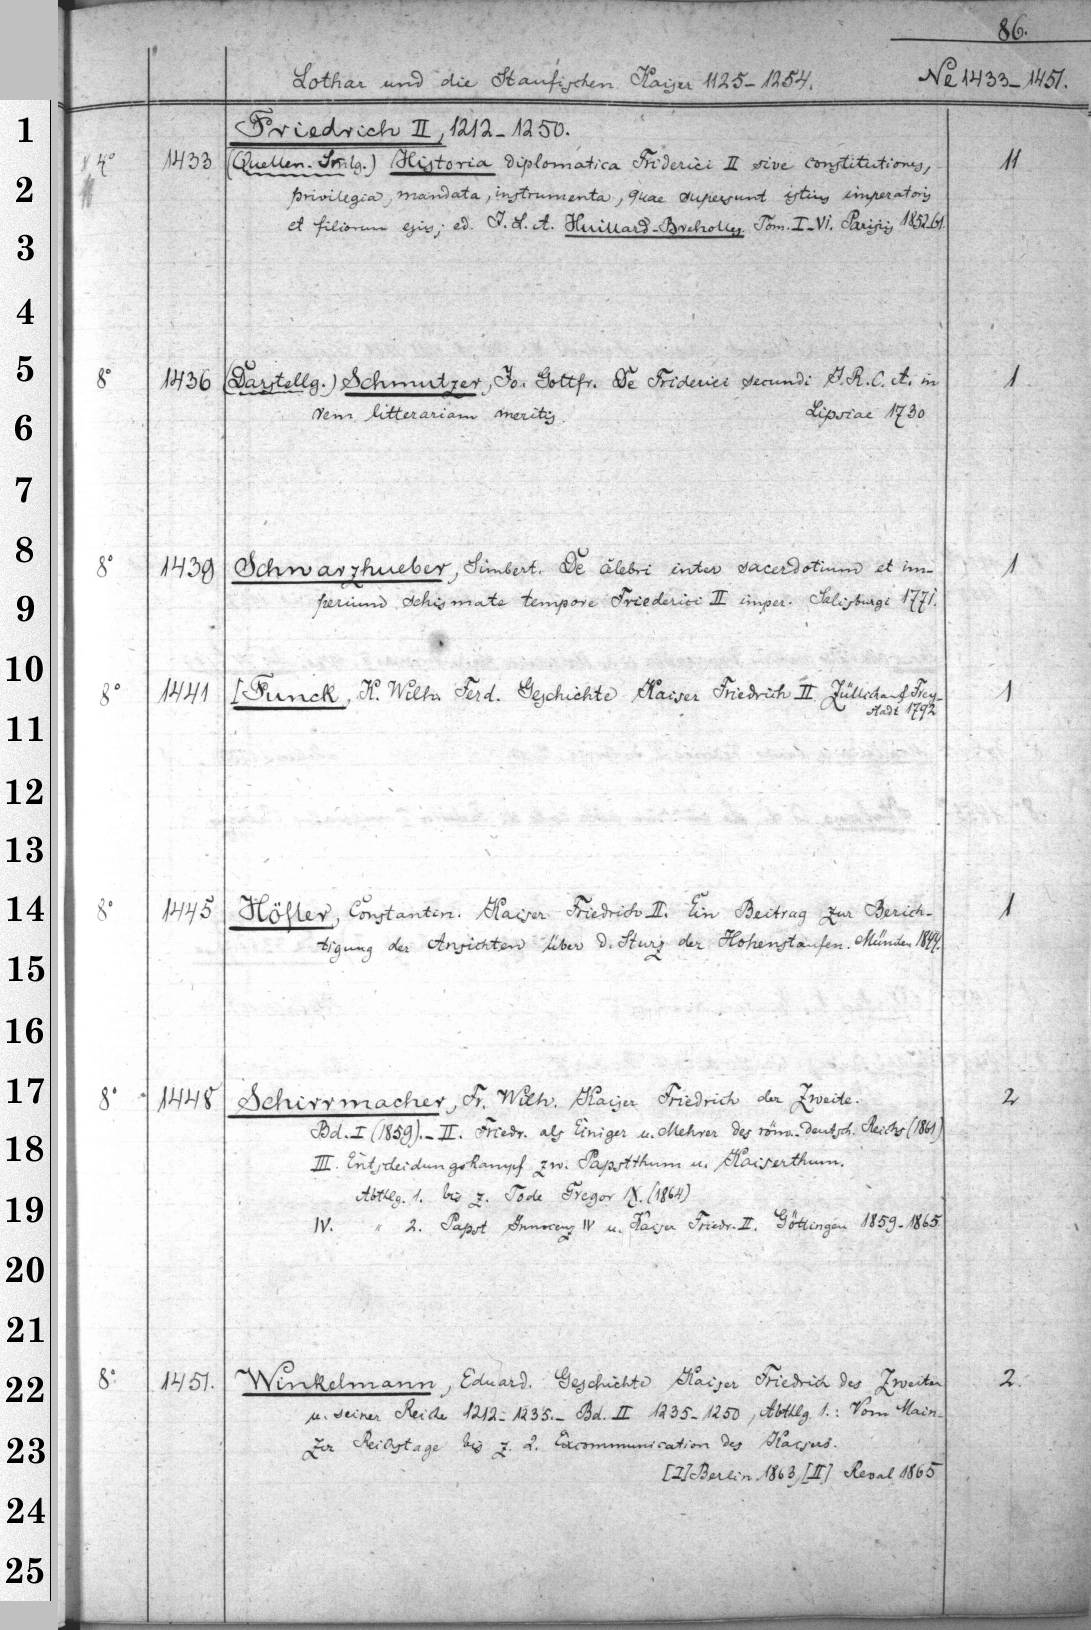 86.
Lothar und die Staufischen Kaiser 1125-1254. No 1433-1451.
1
Friedrich II, 1212-1250.
4° 1433 (Quellen. Smlg.) Historia diplomatica Friderici II sive constitutiones, 11
2
privilegia, mandata, instrumenta, quae supersunt istius imperatoris
et filiorum ejus; ed. J. L. A. Huillard-Breholles. Tom. I-VI. Parisiis 1852-61
3
4
5
8° 1436 (Darstellg.) Schmutzer, Jo. Gottfr. De Friderici secundi I. R. C. A. in 1
rem litterariam meritis. Lipsiae 1730
6
7
8
8° 1439 Schwarzhueber, Simbert. De celebri inter sacerdotium et im- 1
9
perium schismate tempore Friederici II imper. Salisburgi 1771.
10
8° 1441 [Funck, K. Wilh. Ferd. Geschichte Kaiser Friedrich II. Züllichau u. Frey- 1
stadt 1792
11
12
13
14
8° 1445 Höfler, Constantin. Kaiser Friedrich II. Ein Beitrag zur Berich- 1
tigung der Ansichten über d. Sturz der Hohenstaufen. München 1844.
15
16
17
8° 1448 Schirrmacher, Fr. Wilh. Kaiser Friedrich der Zweite. 2
Bd. I (1859). - II. Friedr. als Einiger u. Mehrer des röm.-deutsch. Reichs (1861)
18
III. Entscheidungskampf zw. Papstthum u. Kaiserthum.
Abthlg. 1. bis z. Tode Gregor IX. (1864)
19
IV. " 2. Papst Innocenz IV u. Kaiser Friedr. II. Göttingen 1859-1865
20
21
8° 1451. Winkelmann, Eduard. Geschichte Kaiser Friedrich des Zweiten 2
22
u. seiner Reiche 1212-1235. - Bd. II 1235-1250, Abthlg 1.: Vom Main-
23
zer Reichstage bis z. 2. Excommunication des Kaisers.
[I] Berlin 1863, [II] Reval 1865
24
25